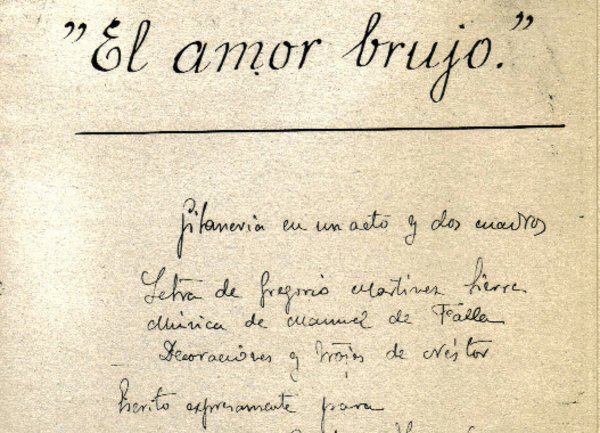 "El amor brujo."
Gitanería en un acto y dos cuadros
Letra de Gregorio Martínez Sierra
Música de Manuel de Falla
Decoraciones y trajes de Néstor
Escrito expresamente para